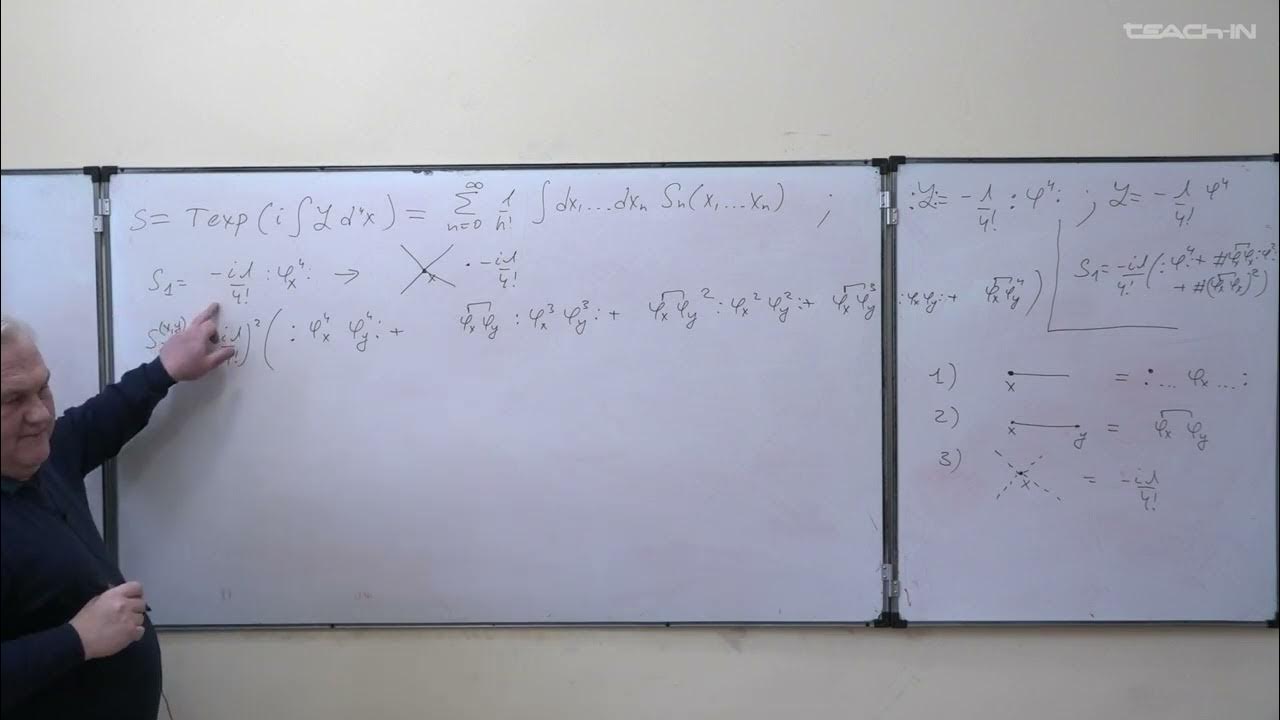 TEACH-IN
S = Texp(i∫ℒd⁴x) = Σ_{n=0}^{∞} 1/n! ∫dx₁...dxₙ Sₙ(x₁...xₙ) ;
S₁ = -iλ/4! :φₓ⁴: → x · -iλ/4!
S (x,y) iλ/4! )² ( :φₓ⁴ φ_y⁴: + φₓφ_y :φₓ³ φ_y³: + φₓφ_y² :φₓ² φ_y²: + φₓφ_y³ :φₓφ_y: + φₓφ_y⁴ )
:ℒ: = -λ/4! :φ⁴: ; ℒ = -λ/4! φ⁴
S₁ = -iλ/4! ( :φ⁴: + #φₓφₓ:φ²:
+ #(φₓφₓ)² )
1) x = :... φₓ ...:
2) x y = φₓ φ_y
3) x = -iλ/4!